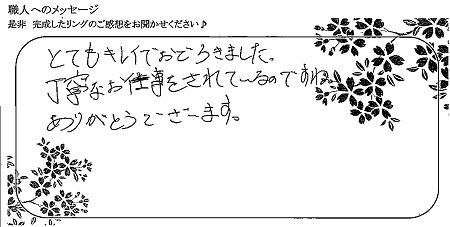 職人へのメッセージ
是非 完成したリングのご感想をお聞かせください♪
とてもキレイでおどろきました。
丁寧なお仕事をされているのですね。
ありがとうございます。